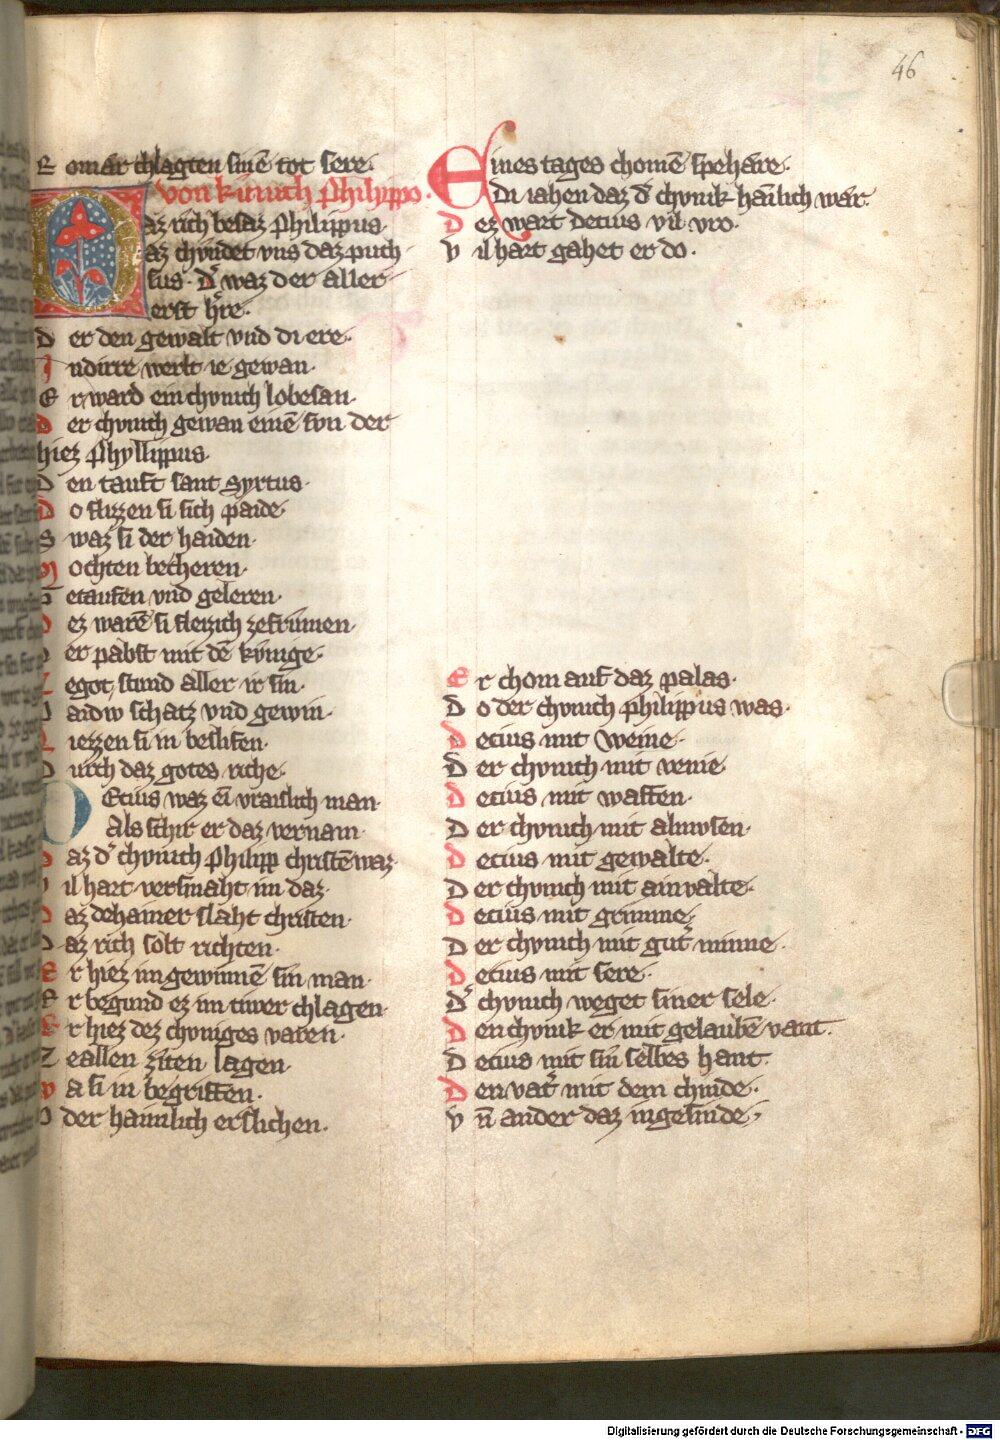 46
R omar chlagten sinē tot sere·
von kunich Philippo·
az rich besaz Philippus·
az chvndet vns daz puch·
sus· D͛ waz der aller
erst h͛re·
D er den gewalt vnd di ere·
I ndirre werlt ie gewan·
E r ward ein chvnich lobesan·
D er chvnich gewan einē svn der
hiez Phyllippus·
D en tauft sant Syxtus·
D o flizzen si sich paide·
S waz si der haiden·
M ochten becheren·
G etaufen vnd geleren·
D ez warē si fleizich zefrumen·
D er pabst mit dē kvnige·
Z egot stund aller ir sin·
B aidiv schatz vnd gewin·
L iezzen si in beslifen·
D urch daz gotes riche·
D Ecius waz eī vraislich man·
Als schir er daz vernam·
D az d͛ chvnich Philipp christē waz·
V il hart versmaht im daz·
D az dehainer slaht christen·
D az rich solt richten·
E r hiez im gewinnē sin man·
E r begund ez im tiwer chlagen·
E r hiez dez chvniges varen·
Z eallen ziten lagen·
W a si in begriffen·
O der haimlich erslichen·
E ines tages chomē spehäre·
Di iahen daz d͛ chvnik hāīlich wär·
D ez wart Decius vil vro·
V il hart gahet er do·
E r chom auf daz palas·
D o der chvnich philippus was·
D ecius mit weine·
D er chvnich mit venie·
D ecius mit waffen·
D er chvnich mit almvsen·
D ecius mit gewalte·
D er chvnich mit ainvalte·
D ecius mit grimme·
D er chvnich mit gut͛ minne·
D ecius mit sere·
D͛ chvnich weget siner sele·
D en chvnik er mit gelaubē vant·
D ecius mit sin selbes hant·
D en vat͛ mit dem chinde·
V n̄ ander daz ingesinde·
Digitalisierung gefördert durch die Deutsche Forschungsgemeinschaft - DFG